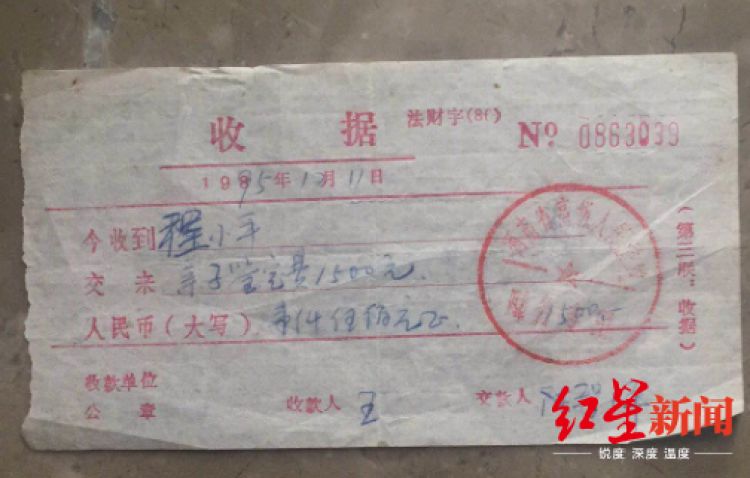 收 据
法财字(86)
№ 0863039
1995年12月11日
今收到 程小平
交 来 亲子鉴定费1500元.
人民币(大写) 壹仟伍佰元正.
(第二联:收据)
收款单位
公 章
收款人 王
交款人
红星新闻
锐度 深度 温度